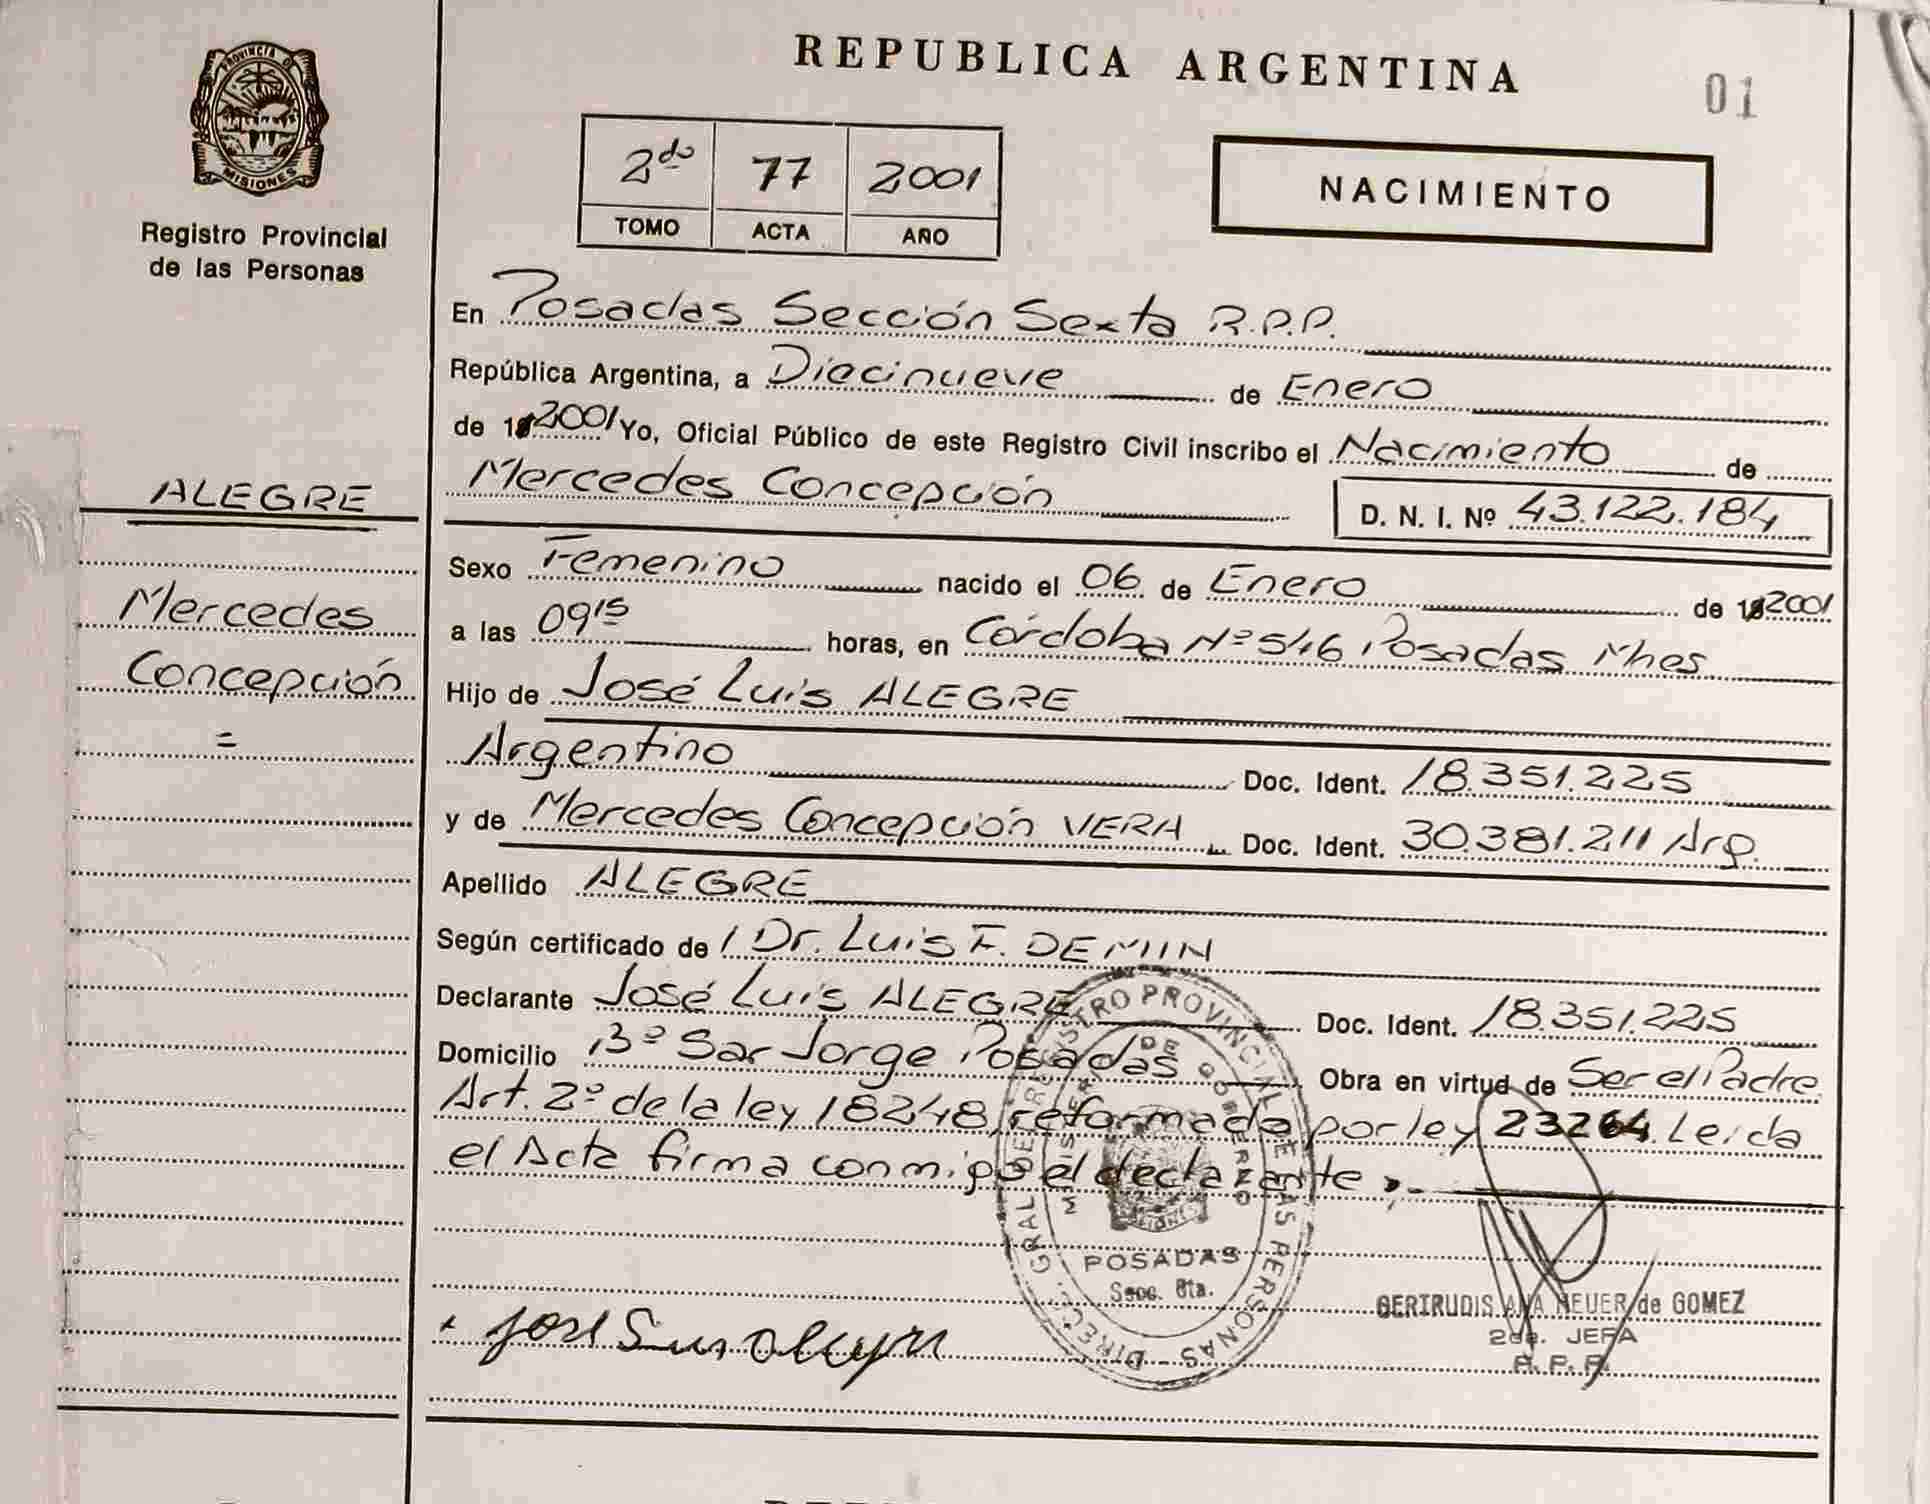 REPUBLICA ARGENTINA
01
PROVINCIA DE
MISIONES
Registro Provincial
de las Personas
2do 77 2001
TOMO ACTA AÑO
NACIMIENTO
En Posadas Sección Sexta R.P.P.
República Argentina, a Diecinueve de Enero
de 2001 Yo, Oficial Público de este Registro Civil inscribo el Nacimiento de
Mercedes Concepción D. N. I. Nº 43.122.184
ALEGRE
Mercedes
Concepción
=
Sexo Femenino nacido el 06 de Enero de 2001
a las 09 15 horas, en Córdoba Nº 546 Posadas Mnes
Hijo de José Luis ALEGRE
Argentino Doc. Ident. 18.351.225
y de Mercedes Concepción VERA Doc. Ident. 30.381.211 Arg.
Apellido ALEGRE
Según certificado de Dr. Luis F. DEMIN
Declarante José Luis ALEGRE Doc. Ident. 18.351.225
Domicilio Bº San Jorge Posadas Obra en virtud de Ser el Padre
Art. 2º de la ley 18248, reformada por ley 23264. Leida
el Acta firma conmigo el declarante.-
DIREC. GRAL DE REGISTRO PROVINCIAL DE LAS PERSONAS
MINISTERIO DE GOBIERNO
POSADAS
Secc. 6ta.
GERTRUDIS ANA HEUER de GOMEZ
2da. JEFA
R. P. P.